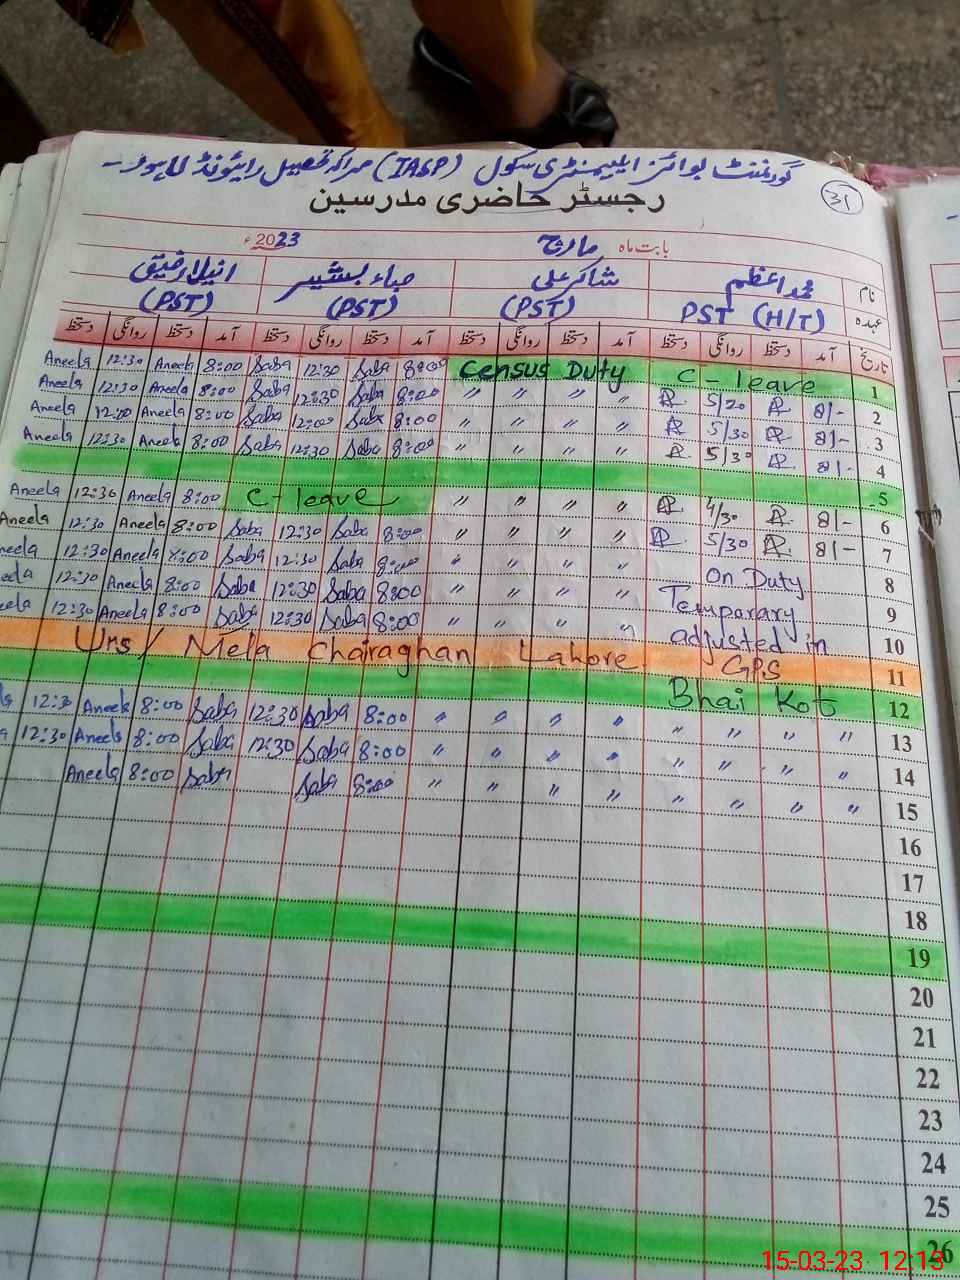 گورنمنٹ بوائز ایلیمنٹری سکول (IAGP) مراکہ تحصیل رائیونڈ لاہور -
31
رجسٹر حاضری مدرسین
بابت ماہ مارچ 2023ء
نام محمد اعظم شاکر علی صباء بشیر انیلا رفیق
عہدہ PST (H/T) (PST) (PST) (PST)
تاریخ آمد دستخط روانگی دستخط آمد دستخط روانگی دستخط آمد دستخط روانگی دستخط آمد دستخط روانگی دستخط
Aneela 12:30 Aneela 8:00 Saba 12:30 Saba 8:00 Census Duty C-leave 1
Aneela 12:30 Aneela 8:00 Saba 12:30 Saba 8:00 " " " " 5/20 8/- 2
Aneela 12:00 Aneela 8:00 Saba 12:00 Saba 8:00 " " " " 5/30 8/- 3
Aneela 12:30 Aneela 8:00 Saba 12:30 Saba 8:00 " " " " 5/30 8/- 4
5
Aneela 12:30 Aneela 8:00 C-leave " " " " 4/30 8/- 6
Aneela 12:30 Aneela 8:00 Saba 12:30 Saba 8:00 " " " " 5/30 8/- 7
neela 12:30 Aneela 8:00 Saba 12:30 Saba 8:00 " " " " On Duty 8
eela 12:30 Aneela 8:00 Saba 12:30 Saba 8:00 " " " " Temparary 9
eela 12:30 Aneela 8:00 Saba 12:30 Saba 8:00 " " " " adjusted in 10
Urs / Mela Chairaghan Lahore GPS 11
Bhai Kot 12
la 12:30 Aneela 8:00 Saba 12:30 Saba 8:00 " " " " " " " " 13
a 12:30 Aneela 8:00 Saba 12:30 Saba 8:00 " " " " " " " " 14
Aneela 8:00 Saba Saba 8:00 " " " " " " " " 15
16
17
18
19
20
21
22
23
24
25
26
15-03-23 12:13